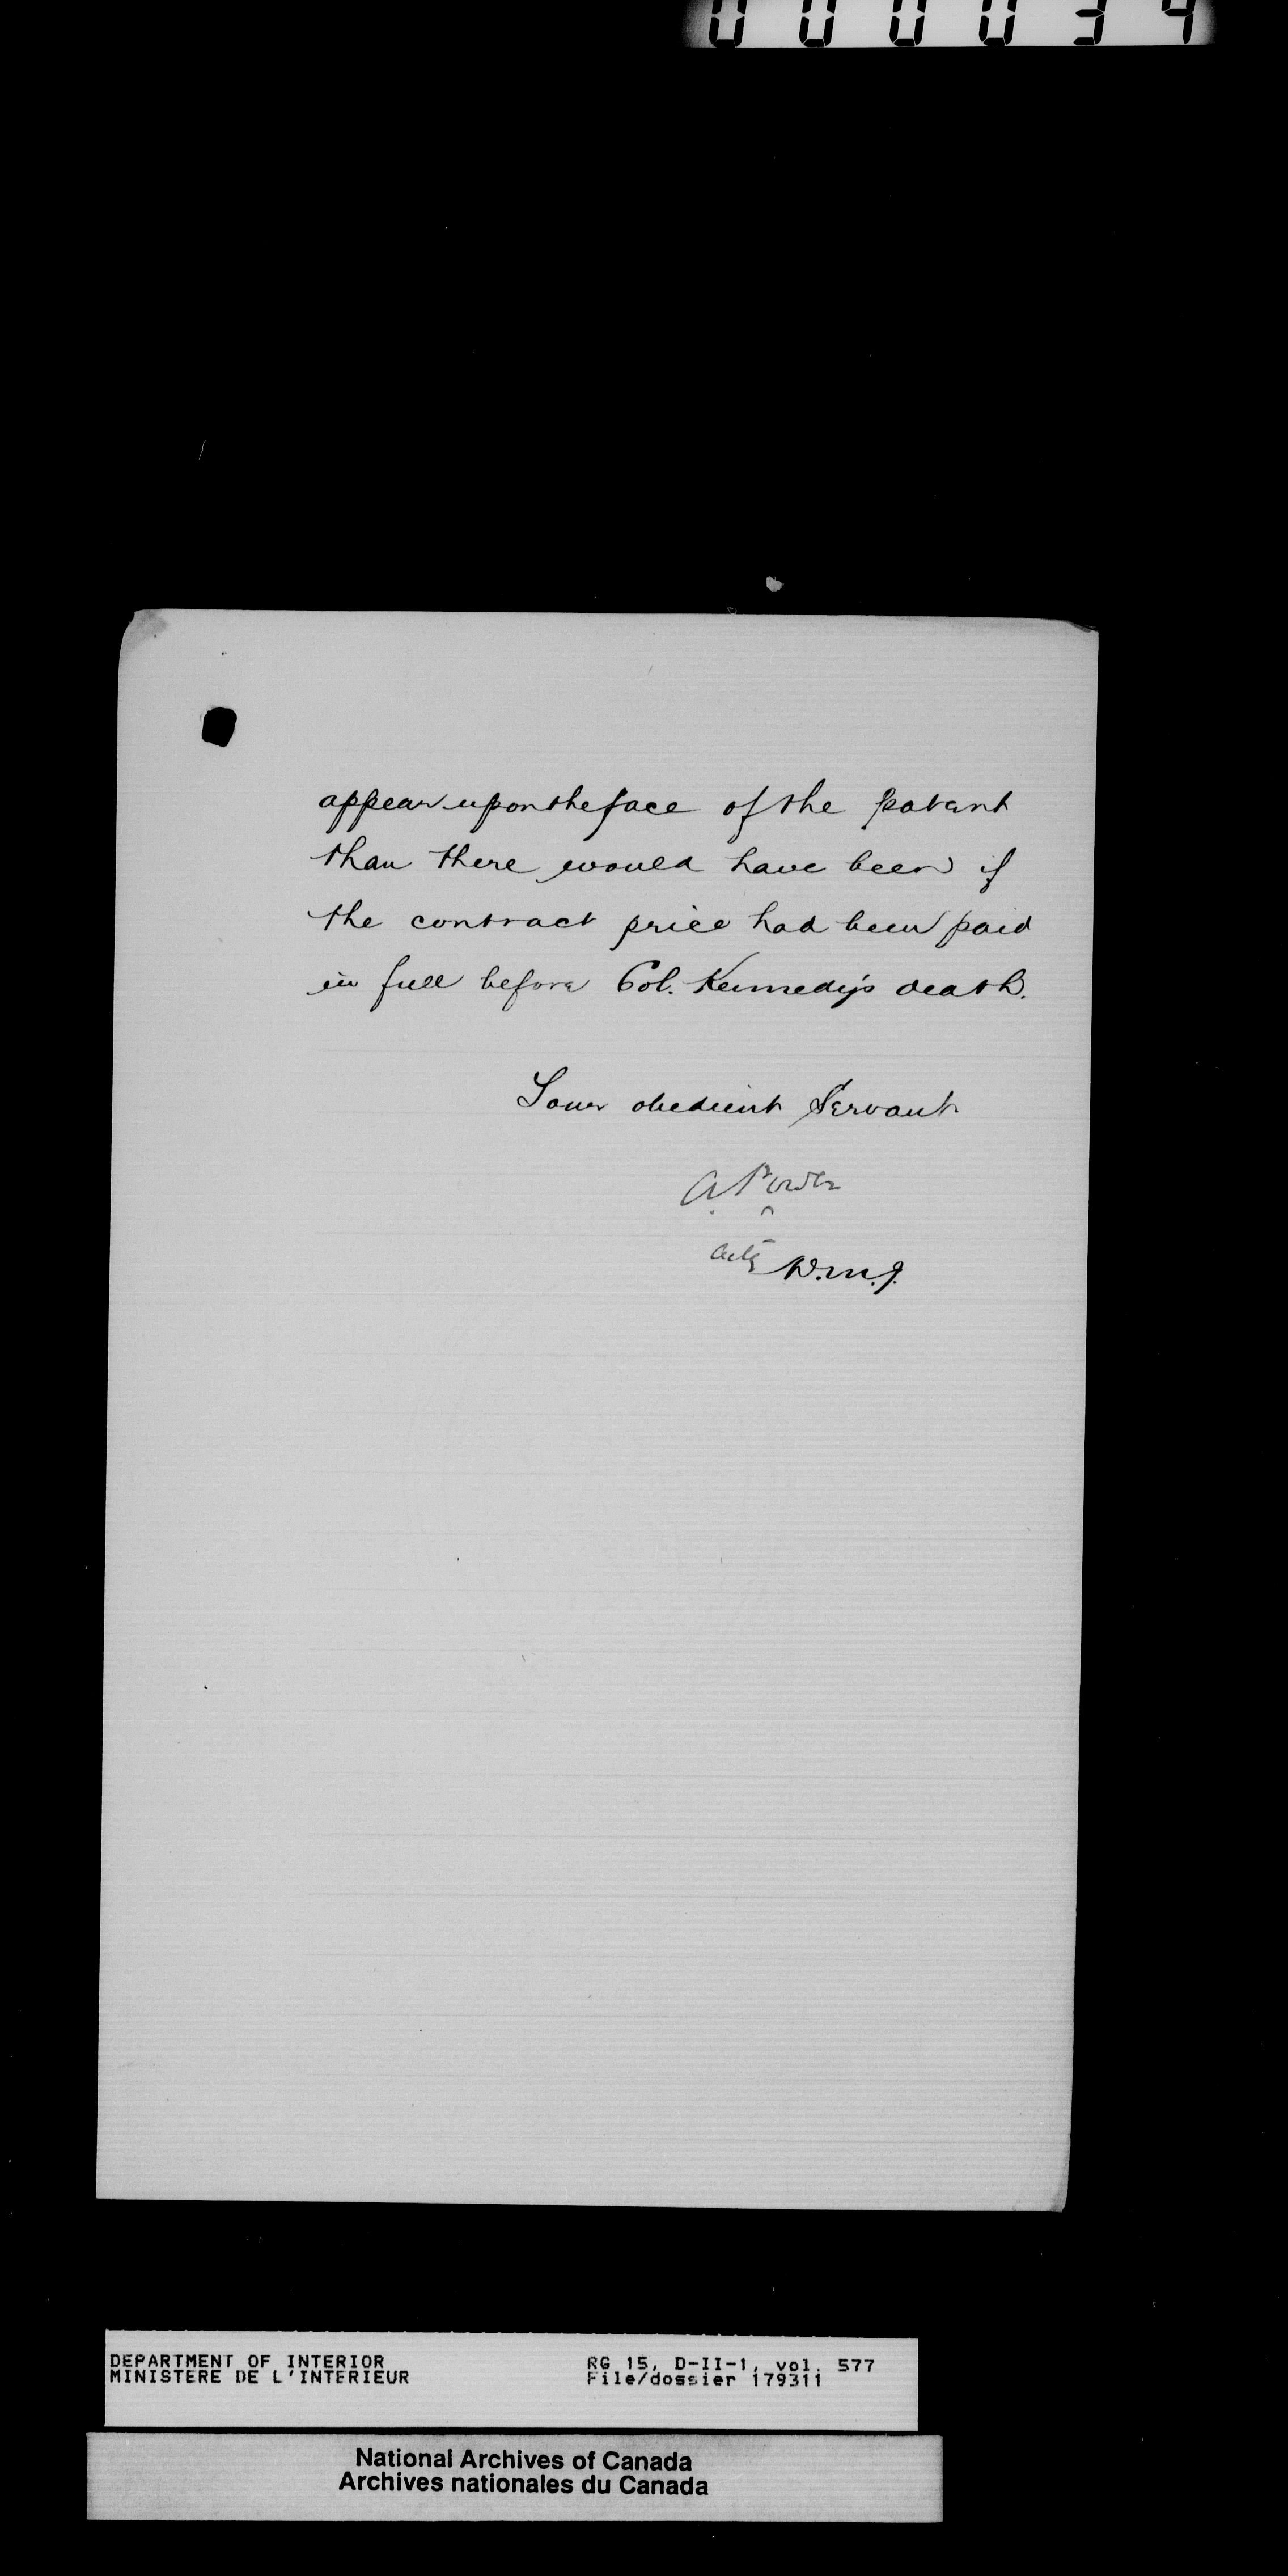 000034
appear upon the face of the patent
than there would have been if
the contract price had been paid
in full before Col. Kennedy's death.
Your obedient Servant
A Power
Actg D.M.J.
DEPARTMENT OF INTERIOR
MINISTERE DE L'INTERIEUR
RG 15, D-II-1, vol. 577
File/dossier 179311
National Archives of Canada
Archives nationales du Canada